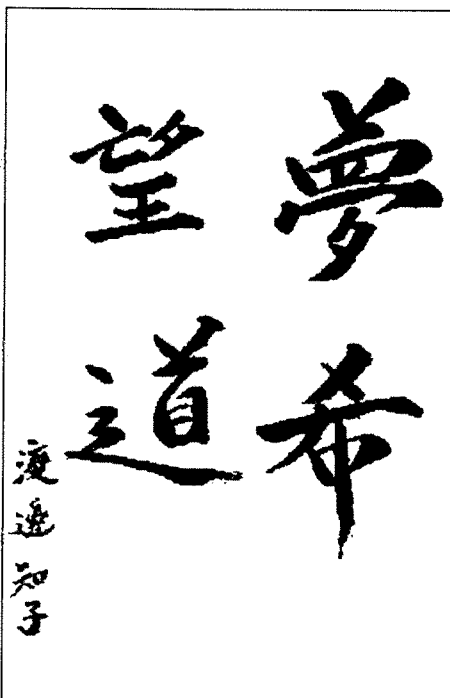 夢希
望道
渡邉知子